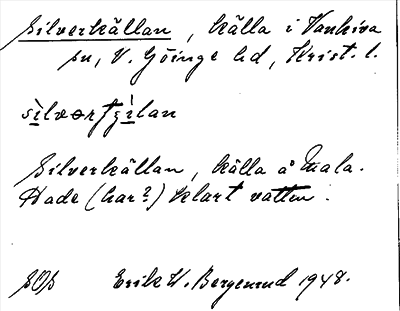 Silverkällan, källa i Vankiva
sn, V. Göinge hd, Krist. l.
Silverkällan, källa å Mala.
Hade (har?) klart vatten.
SOS Erik W. Bergenrud 1948.